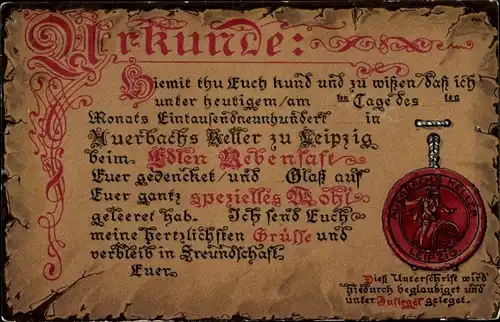 Urkunde:
Hiemit thu Euch kund und zu wißen/daß ich
unter heutigem/am ten Tage des ten
Monats Eintausendneunhundert in
Auerbachs Keller zu Leipzig
beim Edlen Rebensaft
Euer gedencket/und Glaß auf
Euer gantz spezielles Wohl
geleeret hab. Ich send Euch
meine hertzlichsten Grüsse und
verbleib in Freundschaft
Euer
AUERBACHS KELLER
LEIPZIG.
Dieß Unterschrift wird
hiedurch beglaubiget und
unter Insiegel geleget.